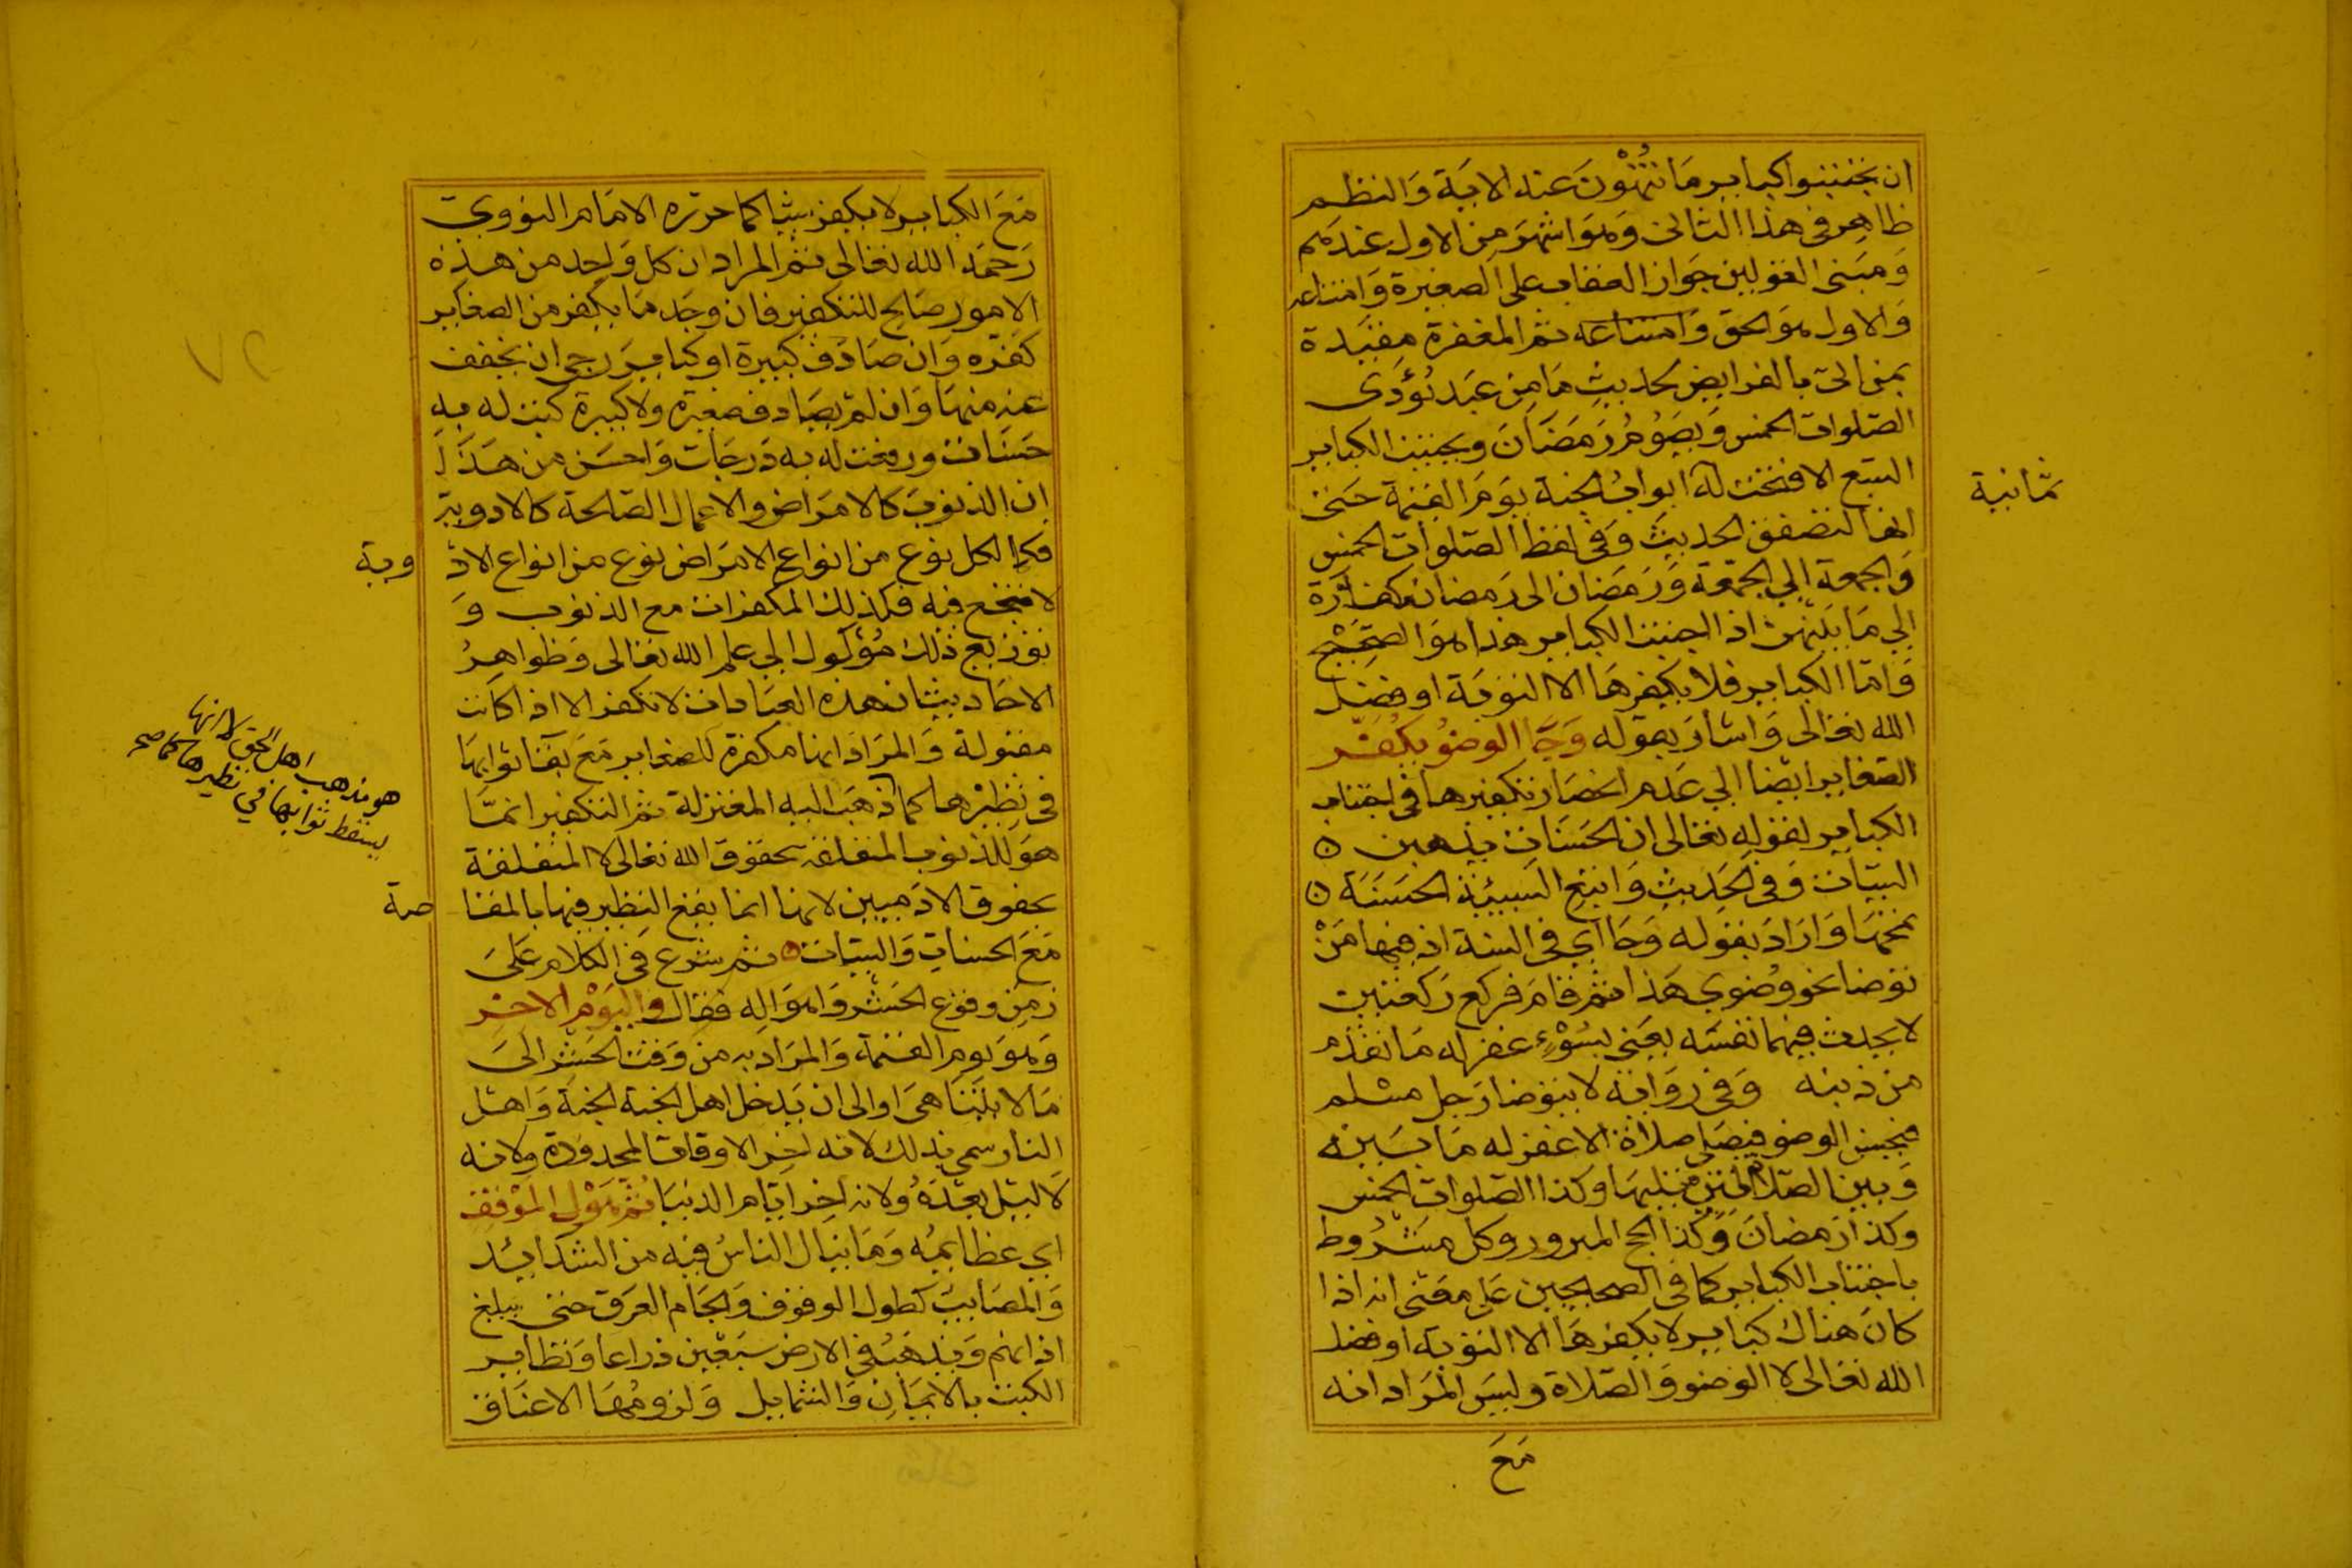 ان تجتنبوا كباير مَا تُنهَوْنَ عنه الاية وَالنظم
ظاهر فى هذا الثانى وَهوَ اشهَر مِن الاول عندهم
وَمبنى القولين جَواز العقاب على الصغيرة وَامتناعه
وَالاول هوَ الحق وَامتناعه ثم المغفرة مقيدة
بمن اتى بالفرايض لحديثِ مَا مِن عَبد يُؤدى
الصّلوات الخمس وَيصُومُ رَمضَانَ ويجتنب الكباير
السّبع الا فتحت له ابوابُ الجنة يومَ القيمة حَتى
ثمانية
انها لتصفق الحديثَ وَفى لفظ الصّلوات الخمس
وَالجمعة الي الجمعَة وَرَمَضان الى رَمضان كفارَة
الي مَا بَينهن اذا اجتنبت الكباير هذا هوَ الصَّحِيْح
وَامّا الكباير فلا يكفرهَا الا التوبَة او فضل
الله تعَالى وَاشار بقوله وَجَا الوضوُ يُكفّر
الصّغاير ايضا الي عَدم انحصَار تكفيرها فى اجتناب
الكباير لقوله تعَالى ان الحَسَنات يذهبن
السيّات وَفى الحَديثِ وَاتبع السيئة الحسَنَة
تمحهَا وَارَادَ بقوله وَجَا اي فى السنة اذ فيها مَنْ
توضا نحو وُضوي هَذا ثم قامَ فركع رَكعتين
لا يحدث فيهما نفسَه يعَنى بسُوْءٍ غفر له مَا تقدّم
من ذنبه وَفى رِوَايَة لا يتوضا رَجل مسْلم
فيحسن الوضو فيصَلي صلاة الا غفر له مَا بَينه
وَبين الصّلاة التى تليهَا وَكذا الصّلوات الخمس
وكذا رَمضانَ وَكذا الحج المبرور وكل مَشْرُوط
باجتناب الكباير كما فى الصحيحين عَلى مَعنى انه اذا
كانَ هناك كباير لا يكفرهَا الا التوبَة او فضل
الله تعَالى لا الوضو وَالصّلاة وليسَ المرَاد انه
مَعَ
مَعَ الكباير لا يكفر شيا كما حرّره الامَام النووي
رَحمَه الله تعَالى ثم المراد ان كل وَاحد من هذه
الامور صَالح للتكفير فان وجَد مَا يكفر من الصغاير
كفرَه وَان صَادَف كبيرة او كبايرَ رجي ان يخفف
عنه منهَا وَان لم يصَادف صغيرة ولا كبيرة كتبت له به
حَسَنات ورفعت له به دَرجَات وَاحسَن من هَذا
ان الذنوبَ كالامرَاض والاعمال الصّالحة كالادوية
فكما لكل نوع من انواع الامرَاض نوع من انواع الادْ
وية
لا ينجع فيه فكذلك المكفرات مع الذنوب وَ
توزيع ذلك مُؤكول الي علم الله تعَالى وَظواهرُ
الاحَاديث ان هذه العبَادات لا تكفر الا اذا كانت
مقبولة وَالمرَاد انها مكفرة للصغاير مَعَ بقا ثوابهَا
هو مذهب اهل الحق لا انها
يسقط ثوابها في نظيرها كما صح
فى نظيرها كما ذهَبَ اليه المعتزلة ثم التكفير انمّا
هوَ للذنوب المتعلقة بحقوق الله تعَالى لا المتعلقة
بحقوق الادَميين لانها انما يقع النظير فيها بالمقا
صة
مَعَ الحسناتِ وَالسيّات ثم شرع فى الكلام عَلى
زمَن وقوع الحَشْر وَاهوَاله فقال واليَوْم الاخِر
وَهوَ يوم القيمة وَالمرَاد به من وَقت الحَشْر الىَ
مَا لا يتنَاهىَ او الى ان يَدخل اهل الجنة الجنة وَاهل
النار سمي بذلك لانه اخِر الاوقات المحدودة ولانه
لا ليل بَعدَهُ ولانه اخِر ايّام الدنيَا ثم هَوْل المَوْقف
اي عظايمهُ وَمَا ينال الناسُ فيه من الشدَايد
وَالمصَايب كطول الوقوف وَالجَام العَرَق حتى يبلغ
اذانهم وَيذهَبُ فى الارض سَبعين ذراعا وَتطاير
الكتب بالايمَانِ وَالشمايل وَلزومُهَا الاعنَاق